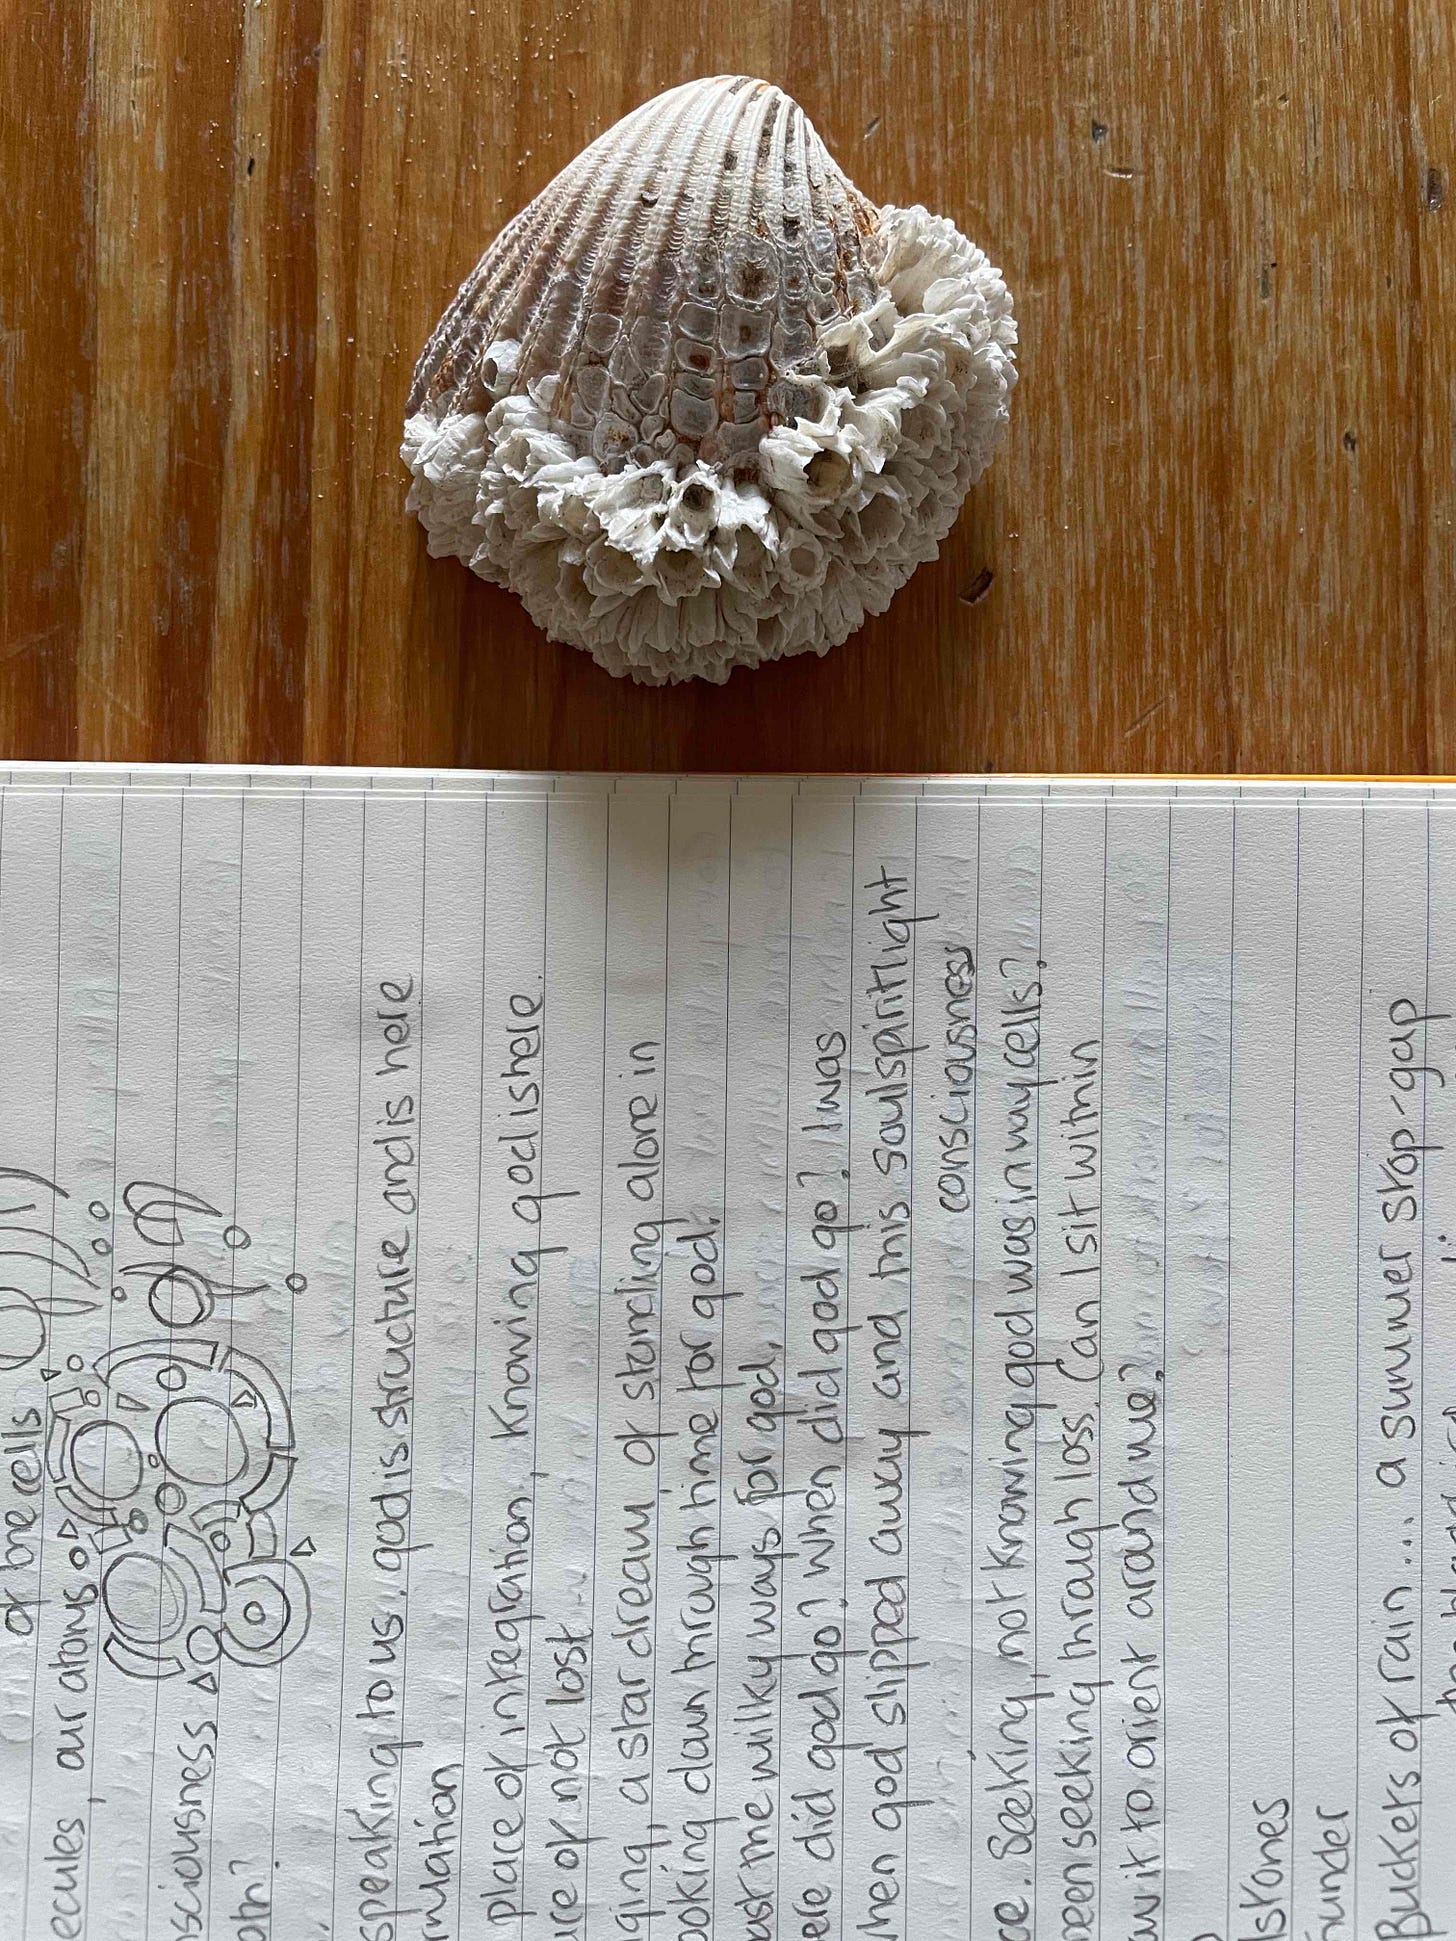 of the cells
ecules, our atoms
sciousness
oth?
speaking to us. god is structure and is here
rmation
place of integration, knowing god is here.
ure of not lost
ging, a star dream, of standing alone in
ooking down through time for god.
ast the milky ways for god.
ere did god go? when did god go? I was
hen god slipped away and this soulspiritlight
consciousness
ce. Seeking, not knowing god was in my cells?
been seeking through loss. Can I sit within
w it to orient around me?
lstones
hunder
Buckets of rain... a summer stop-gap